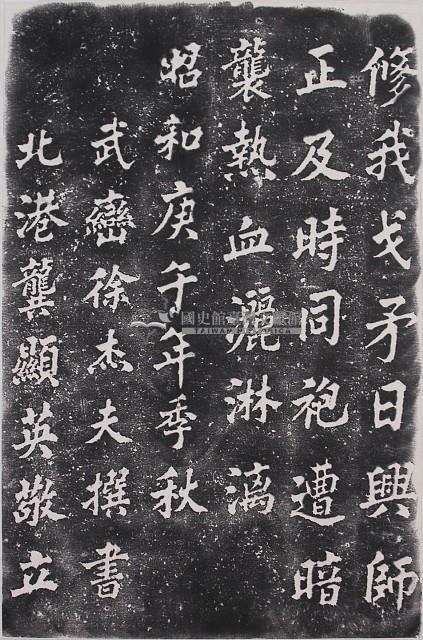 修我戈矛日興師
正及時同袍遭暗
襲熱血灑淋漓
昭和庚午年季秋
武巒徐杰夫撰書
北港龔顯英敬立
國史館臺灣文獻館
TAIWAN HISTORICA